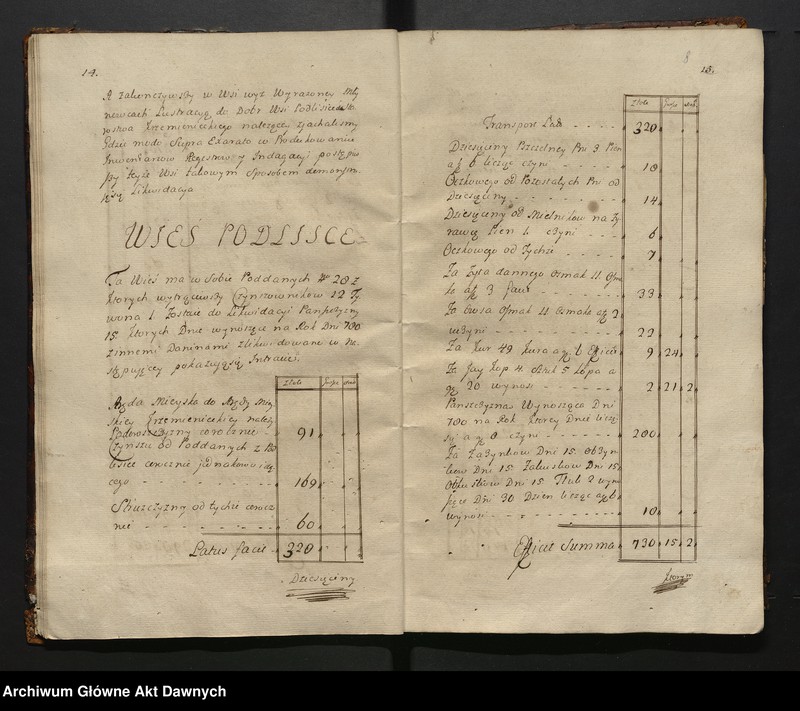 14.
A zakonczywszy w Wsi wyż Wyrażoney Mły
nowcach Lustracyą do Dobr Wsi Podlisiec Sta
rostwa Krzemienieckiego należący zjachalismy
gdzie modo Supra Exarato w Produkowaniu
Inwentarzow Regestrow y Indagacyi postępu
jąc teyże Wsi takowym Sposobem
Likwidacya
WIEŚ PODLISCE
Ta Wieś ma w Sobie Poddanych 28 z
ktorych wytrąciwszy Czynszownikow 12
wona 1 Zostaie do Likwidacyi Panszczyzny
15 ktorych Dnie wynoszące na Rok Dni 780
z innemi Daninami zlikwidowane w na
stępuiący pokazuią się Intracie.
Złote Grosz
Miesyka do
skiey Krzemienieckiey należy
Podorosczyzny corocznie - 91
Czynszu od Poddanych z Pod
lisiec corocznie jednakowo idą
cego - - - - 169
Stróżczyzny od tychże corocz
nie - - - - 60
Latus facit - 320
Dziesięciny
8
15.
Złote Grosz
Transport - - - - 320
Dziesięciny Pszczelney Pni 3 Pień
a ƒ 6 licząc czyni - - 18
Oczkowego od Pozostałych Pni od
Dziesięciny - - - - 14
Dziesięciny od Mielnikow na
Pień 1 czyni - - 6
Oczkowego od Tychże - - 7
Za Żyta dannego Osmak 11 Osma
ka a ƒ 3 facit - - - 33
Za Owsa Osmak 11 Osmaka a ƒ 2
uczyni - - - - 22
Za Kur 49 Kura a g. 6 Efficit 9 24
Za Jay Kop 4 Sztuk 5 Kopa a
g. 20 wynosi - - - 2 21 2
Panszczyzna Wynosząca Dni
780 na Rok ktorey Dnie licząc
a g. 8 czyni - - - 200
Za Zażynkow Dni 15 Obżyn
kow Dni 15 Zakoskow Dni 15
Obkoskow Dni 15 Tłuk 2 wyno
szące Dni 30 Dzień licząc a g. 6
wynosi - - - - 10
Efficit Summa 730 15 2
ktorym
Archiwum Główne Akt Dawnych